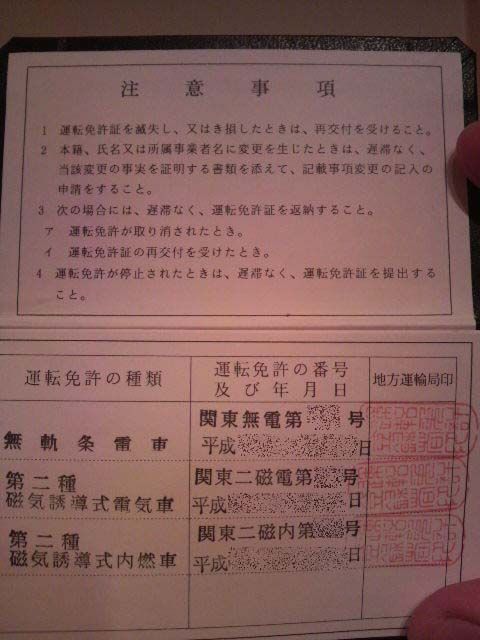 注意事項
1 運転免許証を滅失し、又はき損したときは、再交付を受けること。
2 本籍、氏名又は所属事業者名に変更を生じたときは、遅滞なく、
当該変更の事実を証明する書類を添えて、記載事項変更の記入の
申請をすること。
3 次の場合には、遅滞なく、運転免許証を返納すること。
ア 運転免許が取り消されたとき。
イ 運転免許証の再交付を受けたとき。
4 運転免許が停止されたときは、遅滞なく、運転免許証を提出する
こと。
運転免許の種類 運転免許の番号 地方運輸局印
及び年月日
無軌条電車 関東無電第 号
平成 日
第二種 関東二磁電第 号
磁気誘導式電気車 平成 日
第二種 関東二磁内第 号
磁気誘導式内燃車 平成 日